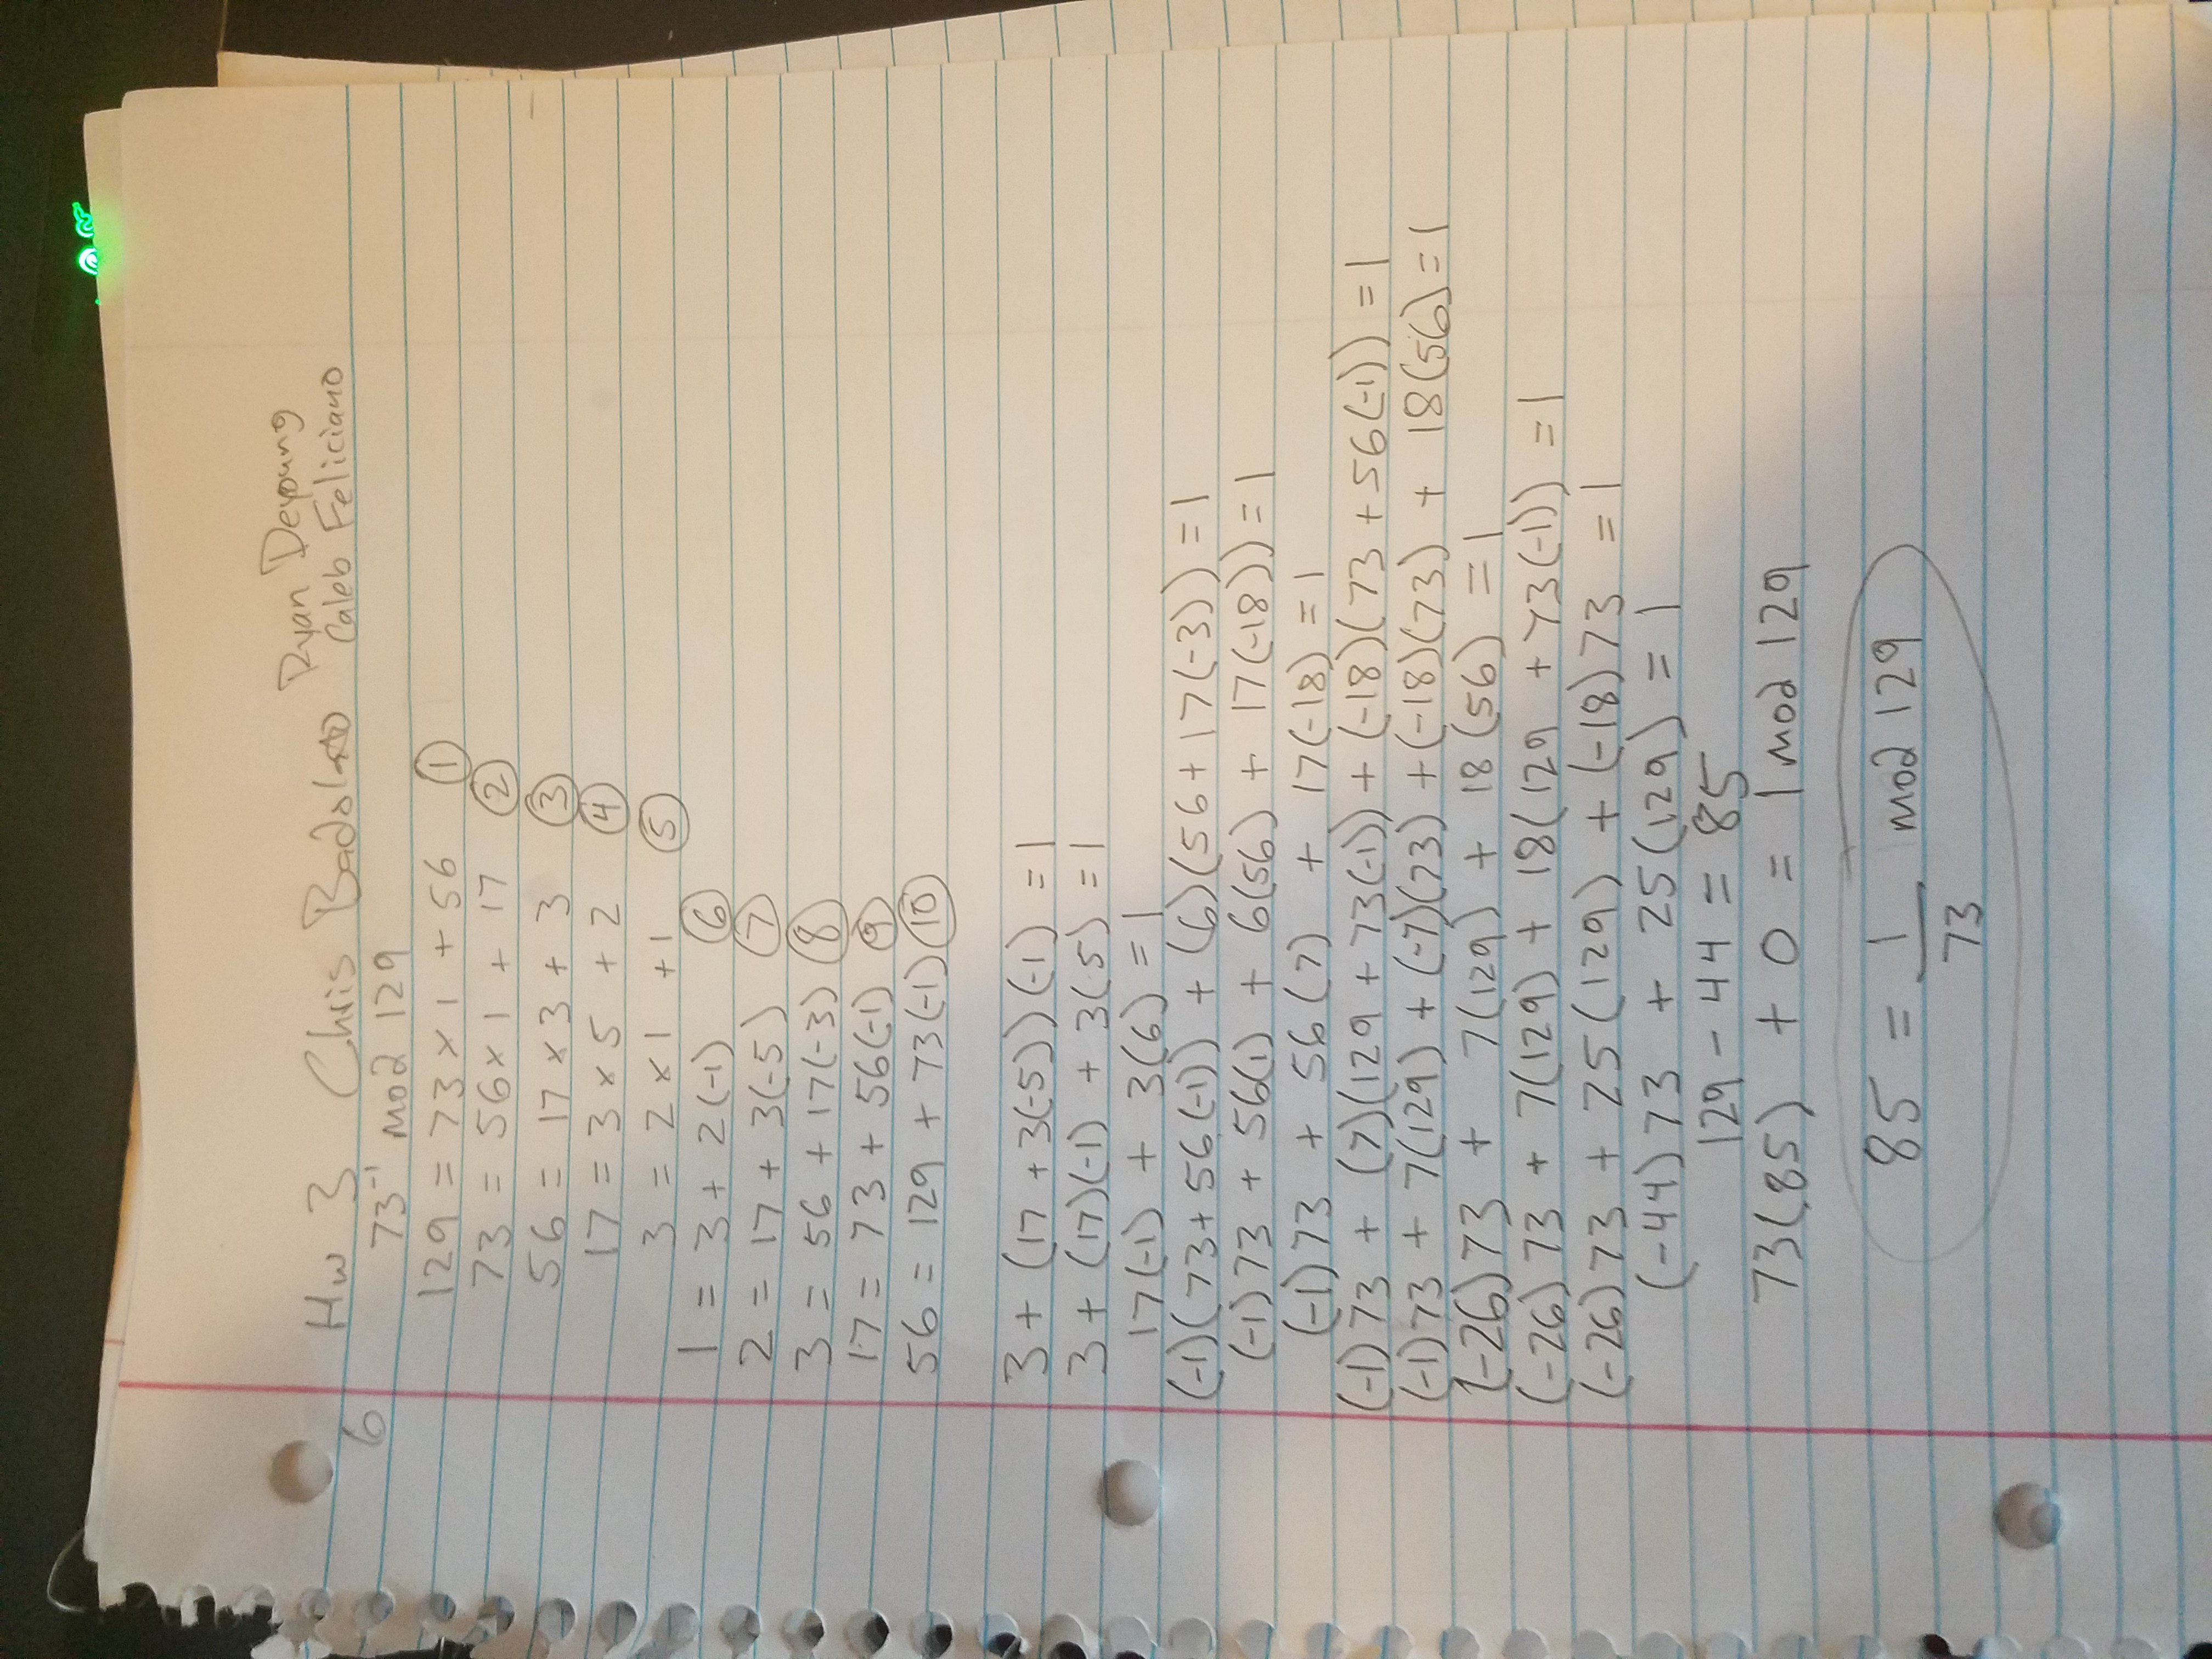 Hw 3 Chris Badolato Ryan Deyoung
Caleb Feliciano
6 73⁻¹ mod 129
129 = 73 × 1 + 56 ①
73 = 56 × 1 + 17 ②
56 = 17 × 3 + 3 ③
17 = 3 × 5 + 2 ④
3 = 2 × 1 + 1 ⑤
1 = 3 + 2(-1) ⑥
2 = 17 + 3(-5) ⑦
3 = 56 + 17(-3) ⑧
17 = 73 + 56(-1) ⑨
56 = 129 + 73(-1) ⑩
3 + (17 + 3(-5))(-1) = 1
3 + (17)(-1) + 3(5) = 1
17(-1) + 3(6) = 1
(-1)(73 + 56(-1)) + (6)(56 + 17(-3)) = 1
(-1)73 + 56(1) + 6(56) + 17(-18)) = 1
(-1)73 + 56(7) + 17(-18) = 1
(-1)73 + (7)(129 + 73(-1)) + (-18)(73 + 56(-1)) = 1
(-1)73 + 7(129) + (-7)(73) + (-18)(73) + 18(56) = 1
(-26)73 + 7(129) + 18(56) = 1
(-26)73 + 7(129) + 18(129 + 73(-1)) = 1
(-26)73 + 25(129) + (-18)73 = 1
(-44)73 + 25(129) = 1
129 - 44 = 85
73(85) + 0 = 1 mod 129
85 = 1/73 mod 129